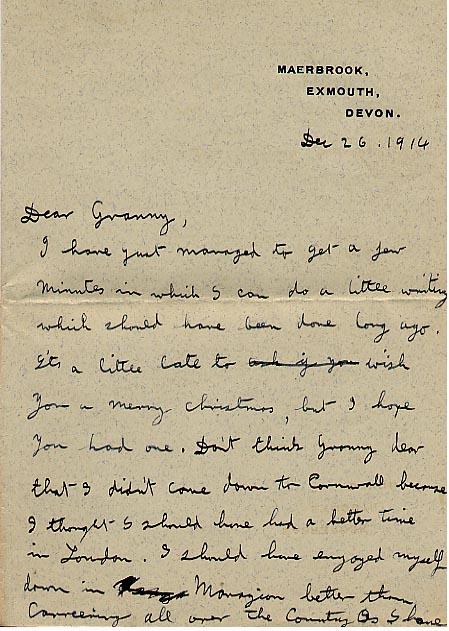 MAERBROOK,
EXMOUTH,
DEVON.
Dec 26. 1914
Dear Granny,
I have just managed to get a few
minutes in which I can do a little writing
which should have been done long ago.
Its a little late to ask if you wish
you a merry christmas, but I hope
you had one. Don't think Granny dear
that I didn't come down to Cornwall because
I thought I should have had a better time
in London. I should have enjoyed myself
down in Marazion better than
Careering all over the Country as I have